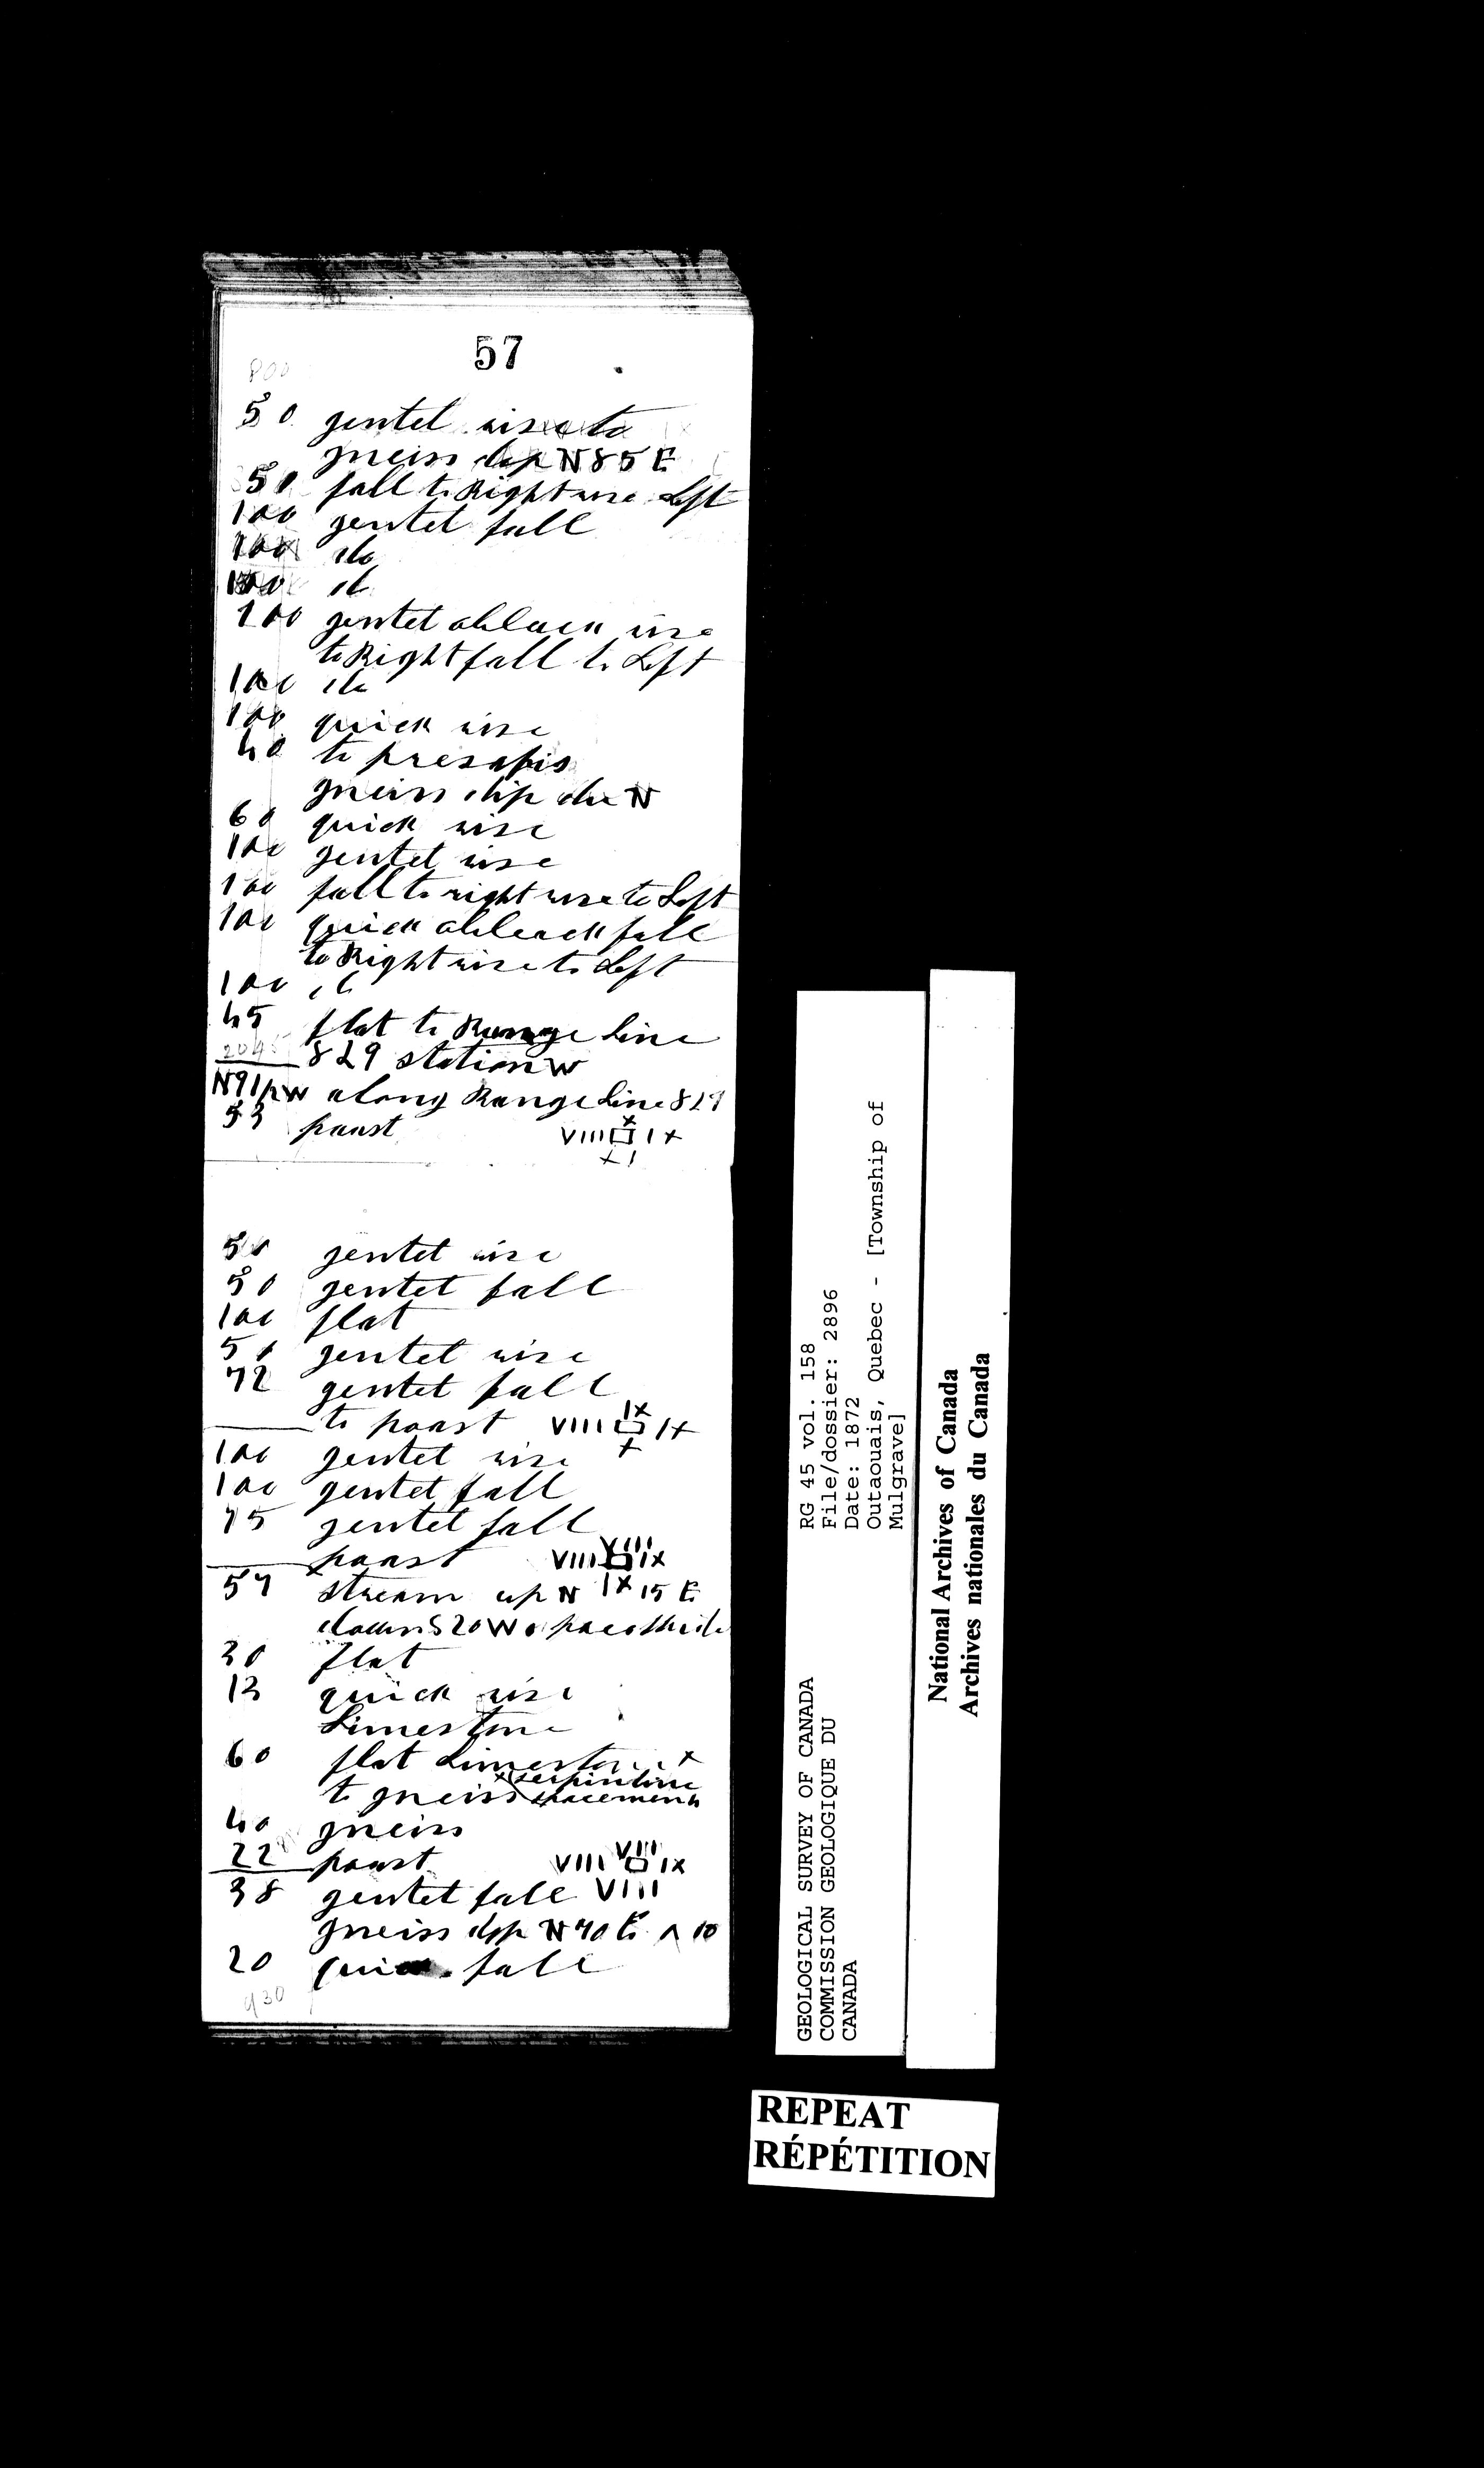 57
800
50 gentel rise to
gneiss dip N85E
50 fall to Right rise Left
100 gentel fall
100 do
100 do
100 gentel ableack rise
to Right fall to Left
100 do
100 quick rise
40 to presapis
gneiss dip due N
60 quick rise
100 gentel rise
100 fall to right rise to Left
100 quick ableack fall
to Right rise to Left
100 do
45 flat to Range Line
2045 829 station W
N91½W along Range Line 829
53 paust VIII X IX
XI
50 gentel rise
50 gentel fall
100 flat
50 gentel rise
72 gentel fall
to paast VIII IX IX
X
100 gentel rise
100 gentel fall
75 gentel fall
paast VIII VIII IX
57 stream up N IX 15 E
down S20W 0 paces wide
30 flat
13 quick rise
Limestone
60 flat Limestone x
to gneiss x serpintine
40 gneiss
22 paust VIII VIII IX
38 gentel fall VIII
gneiss dip N70E ^ 10
20 quick fall
930
GEOLOGICAL SURVEY OF CANADA
COMMISSION GEOLOGIQUE DU
CANADA
RG 45 vol. 158
File/dossier: 2896
Date: 1872
Outaouais, Quebec - [Township of
Mulgrave]
National Archives of Canada
Archives nationales du Canada
REPEAT
RÉPÉTITION